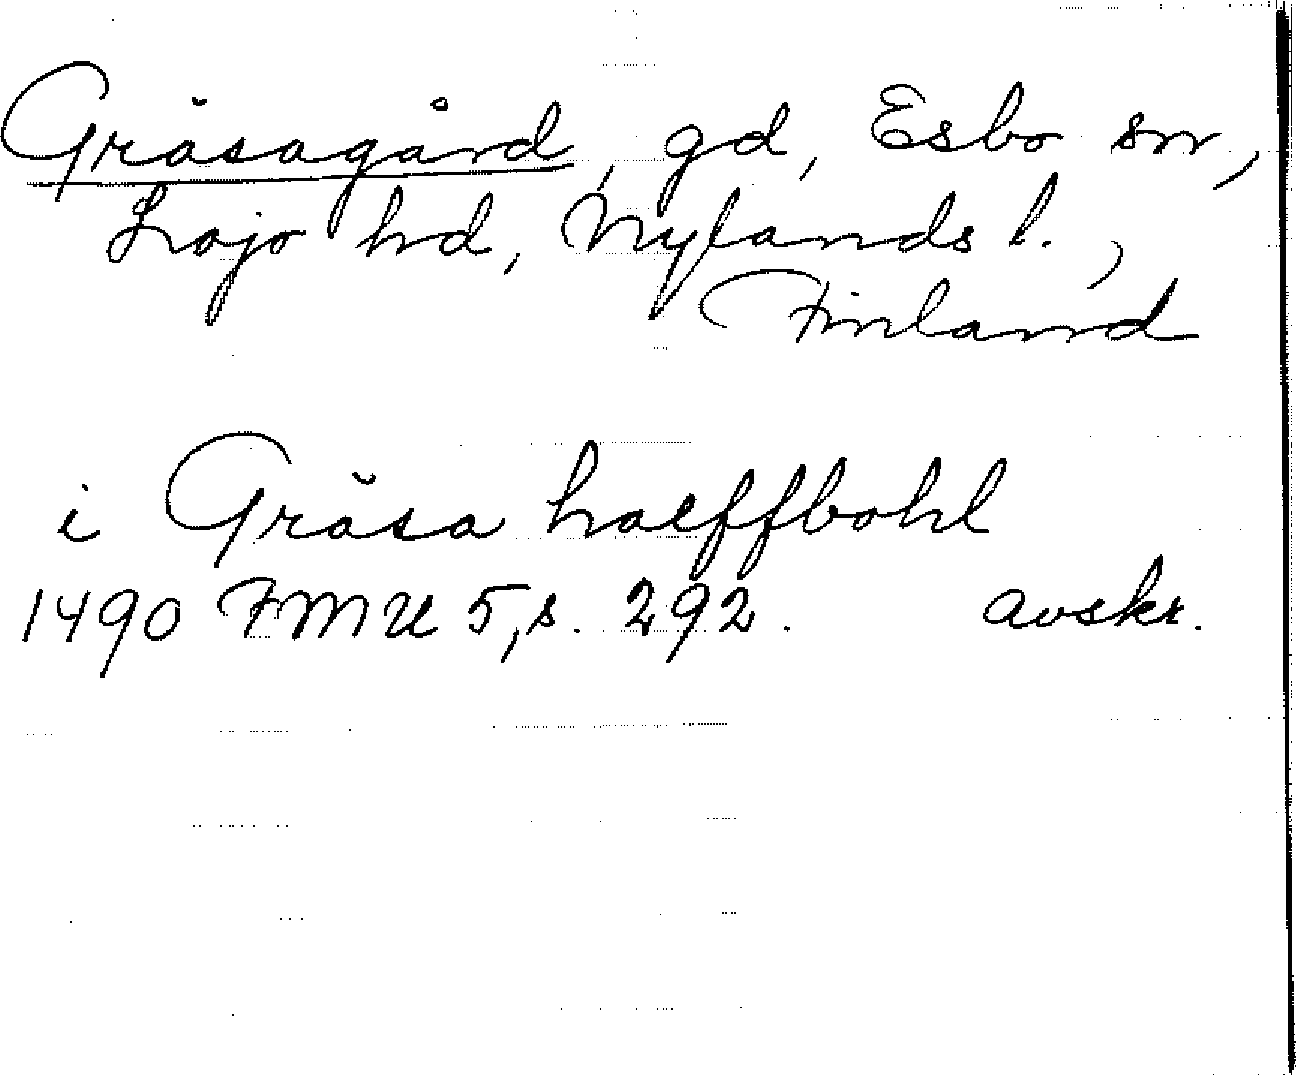 Gräsagård, gd, Esbo sn,
Lojo hd, Nylands l.,
Finland
i Gräsa haeffbohl
1490 FMU 5, s. 292. avskr.